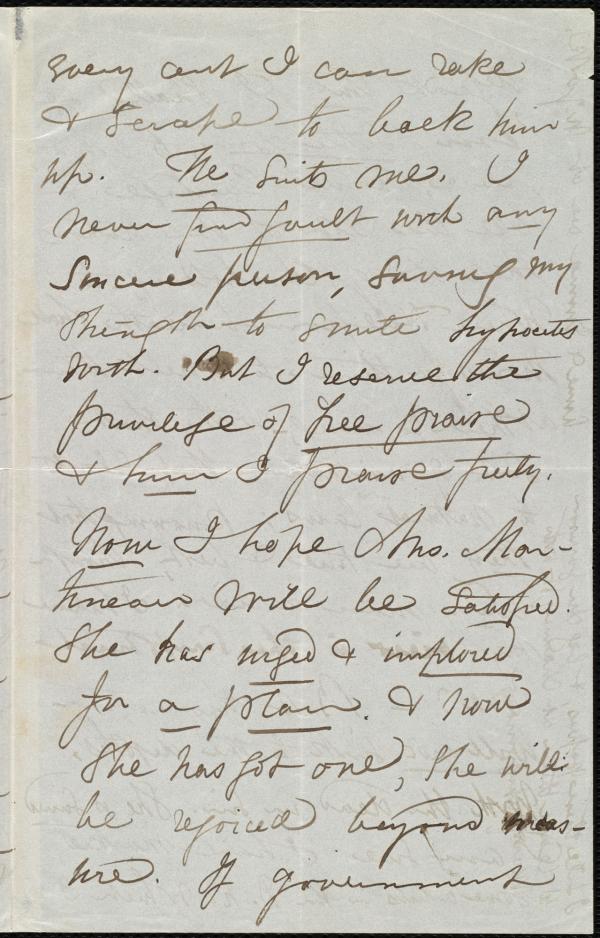 every cent I can rake
& scrape to back him
up. He suits me. I
never find fault with any
sincere person, saving my
strength to smite hypocrites
with. But I reserve the
privilege of free praise
& him I praise freely.
Now I hope Mrs. Mar-
tineau will be satisfied.
She has urged & implored
for a plan. & now
She has got one, She will
be rejoiced beyond meas-
ure. If government